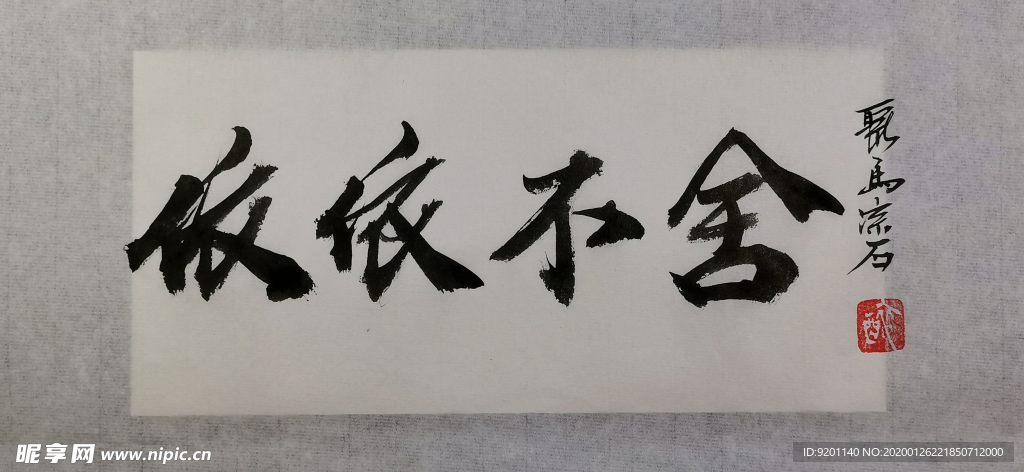 依依不舍
马宗石
昵享网 www.nipic.cn
ID:9201140 NO:20200126221850712000